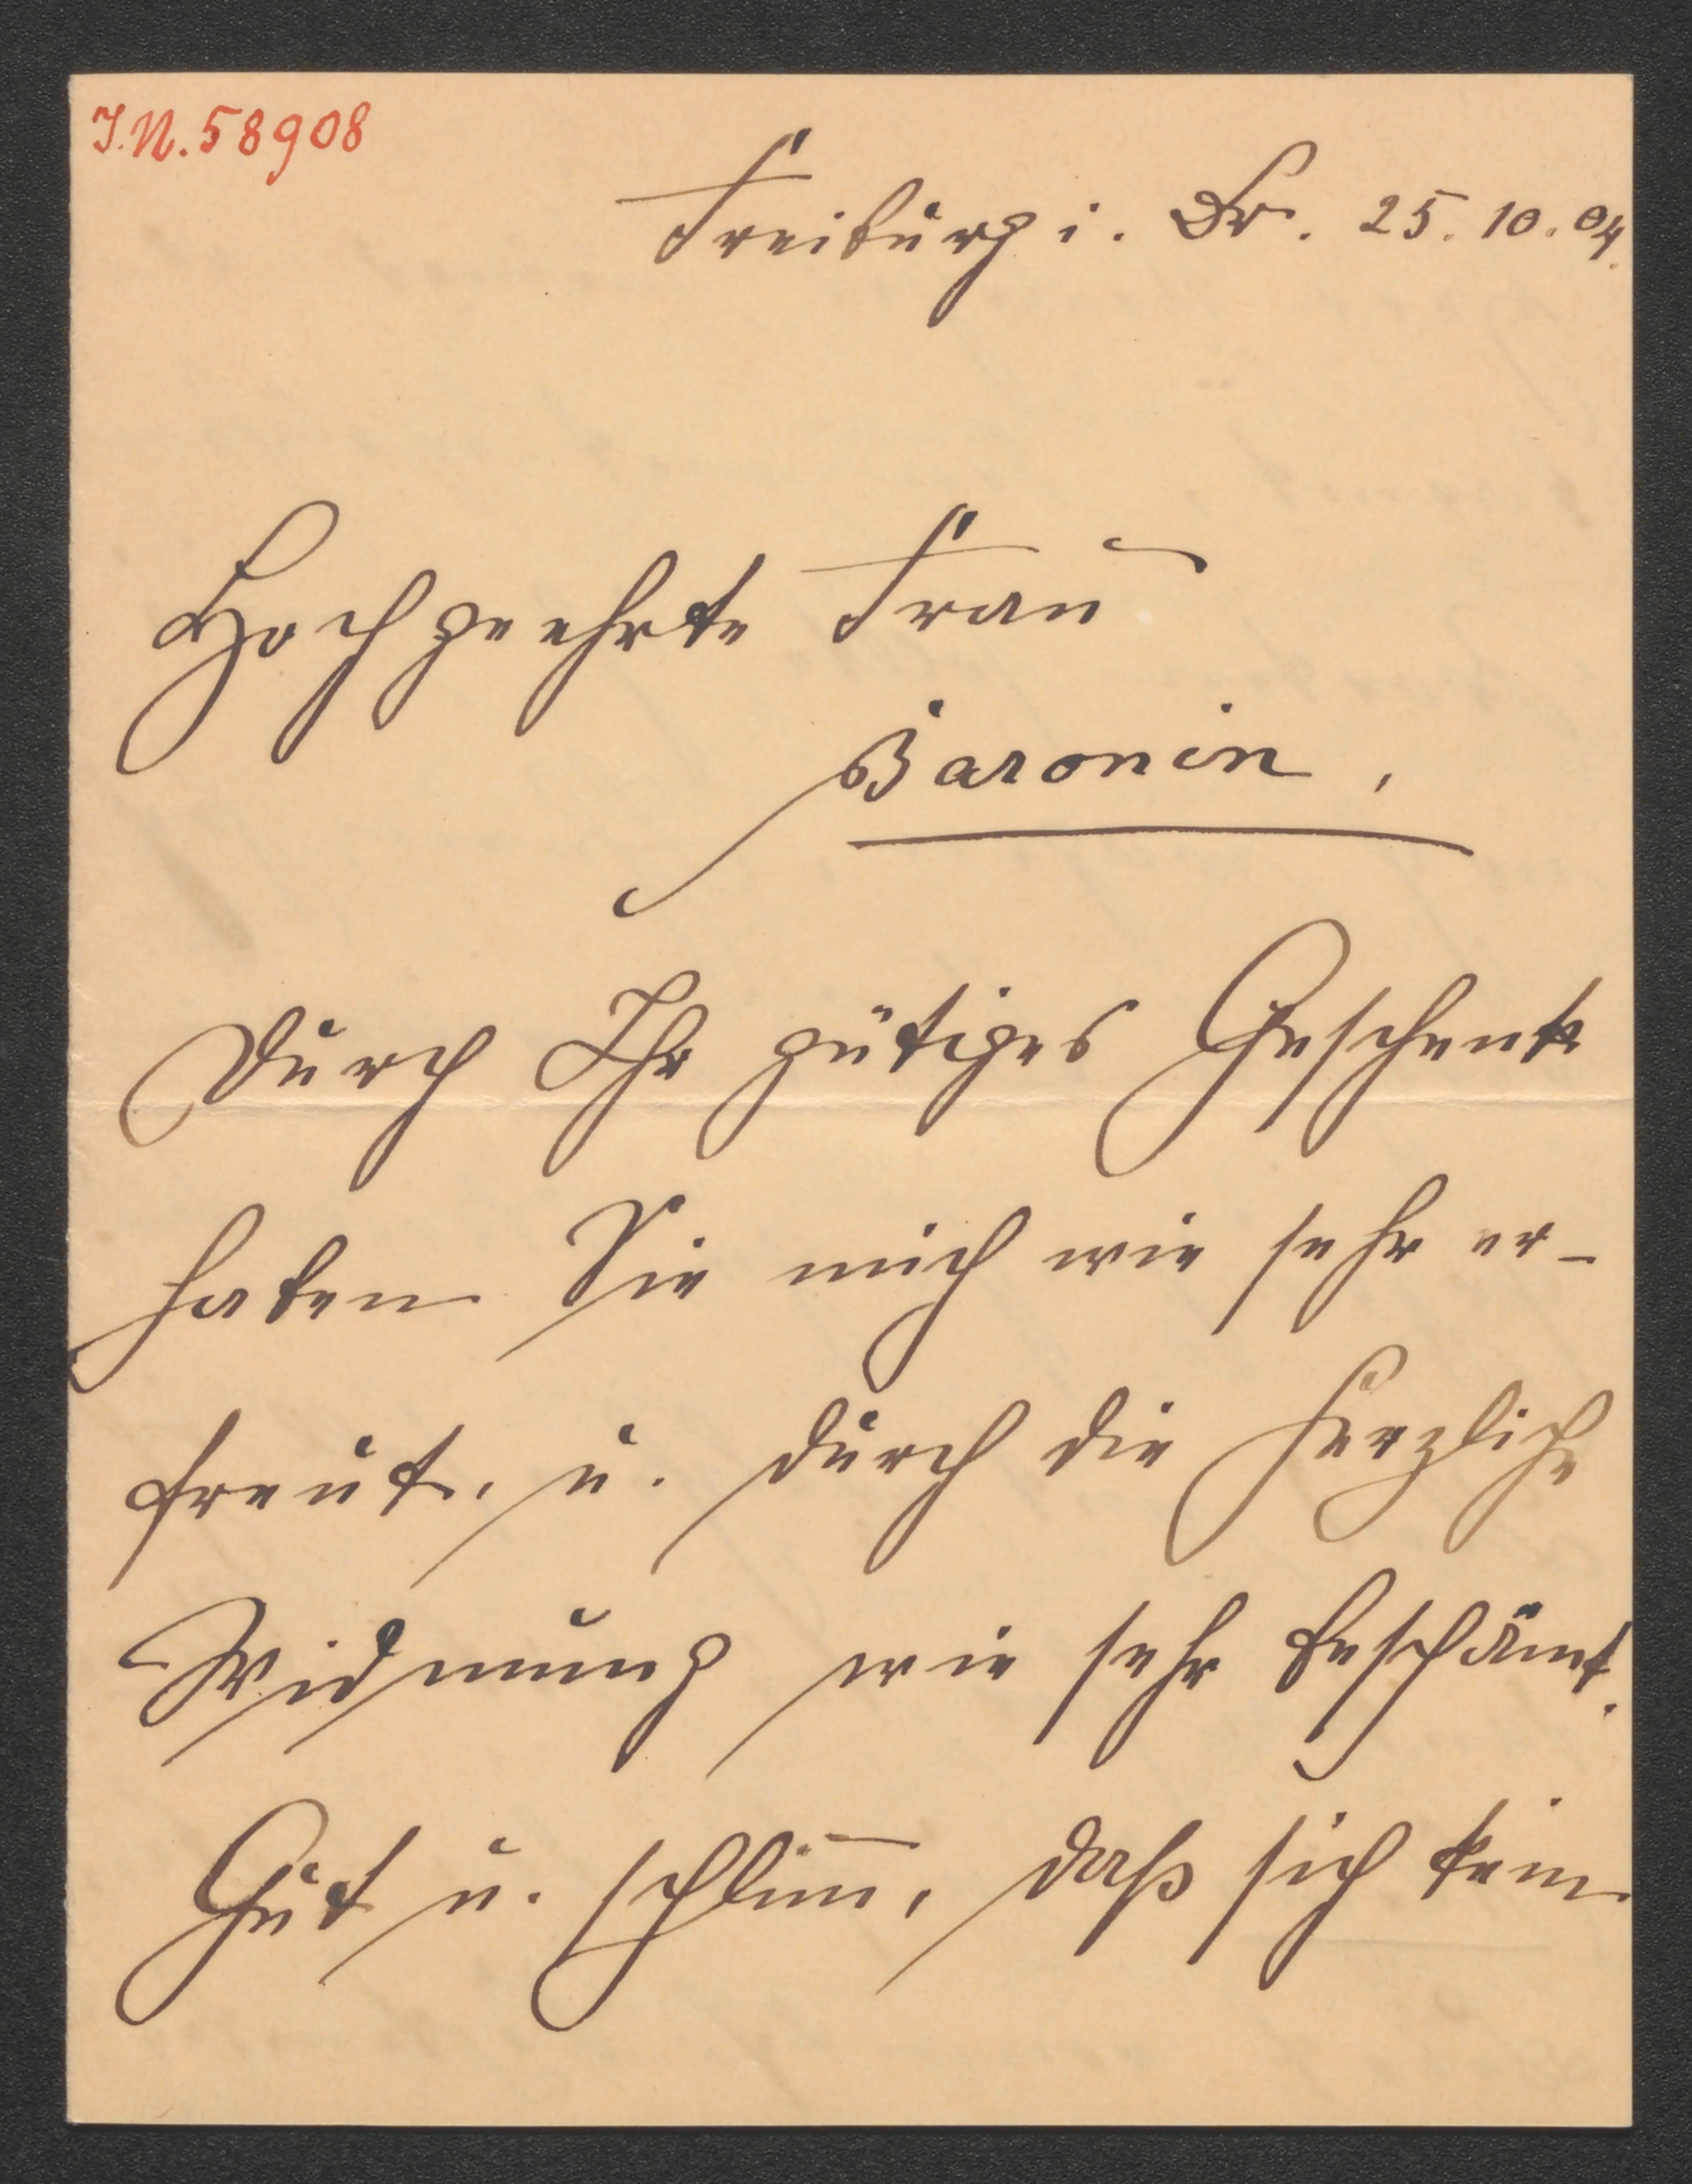 I.N. 58908
Freiburg i. Br. 25. 10. 04.
Hochgeehrte Frau
Baronin,
Durch Ihr gütiges Geschenk
haben Sie mich wie sehr er-
freut, u. durch die herzliche
Widmung wie sehr beschämt.
Gut u. schlim̅, daß sich kein